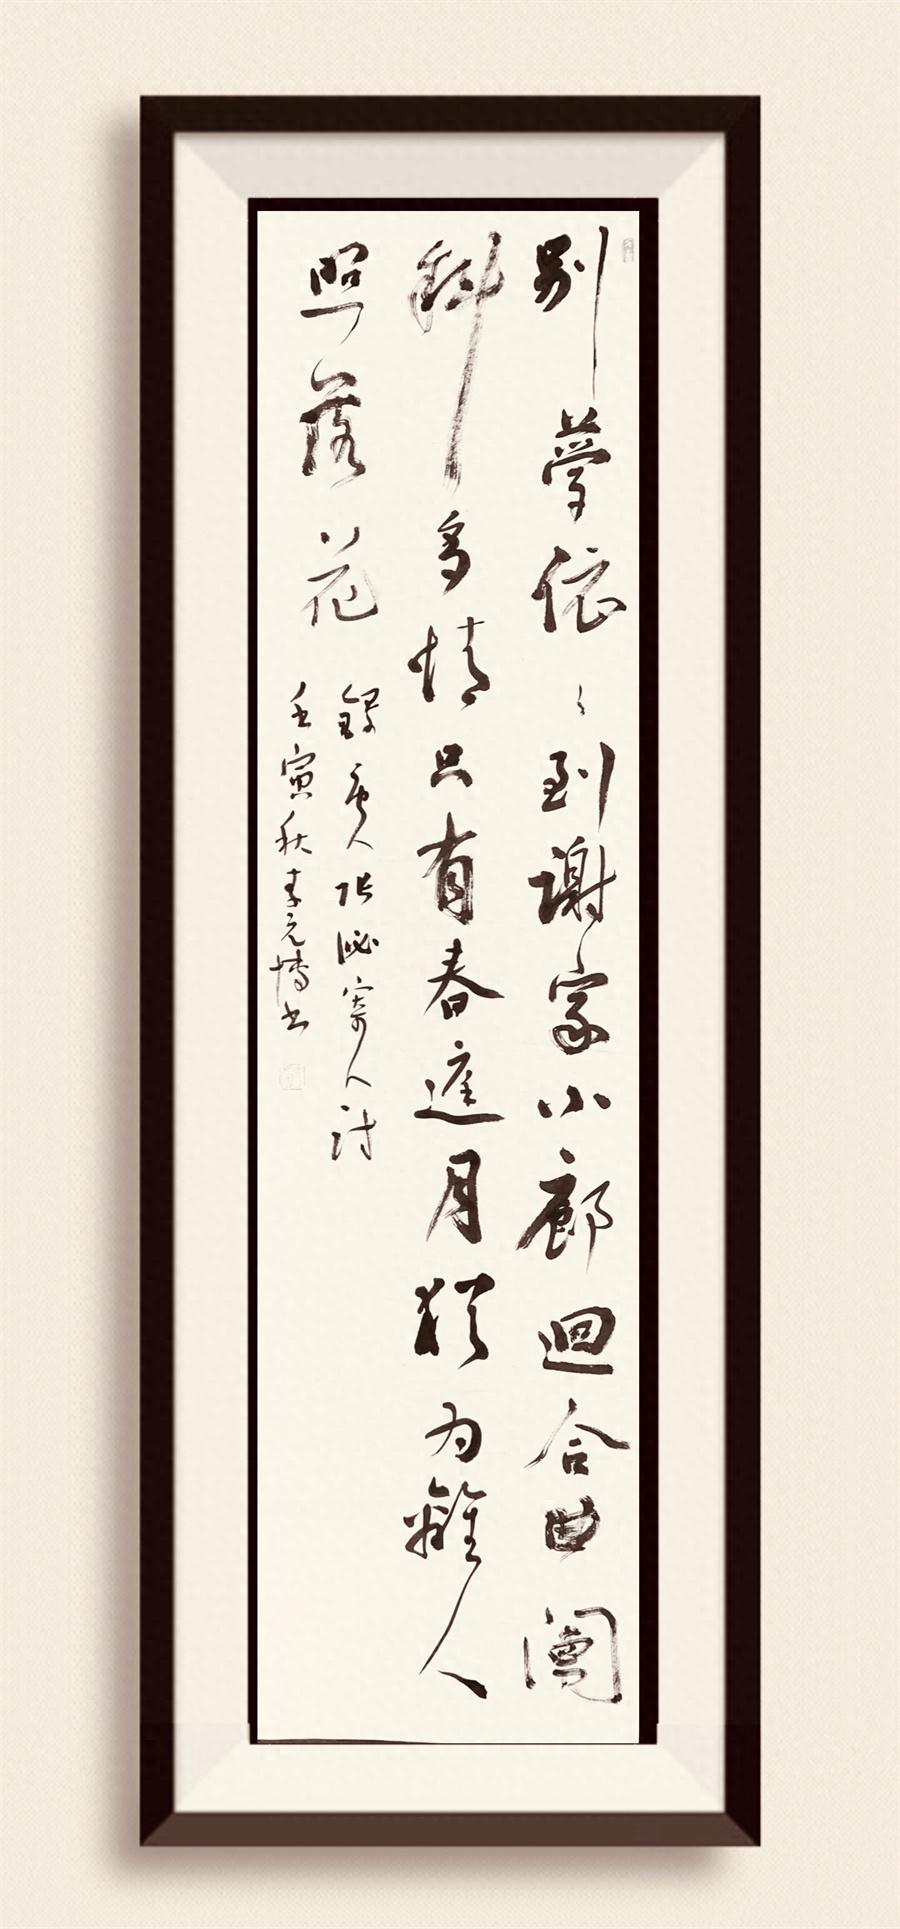 别夢依〻到謝家小廊迴合曲闌
斜多情只有春庭月猶为離人
照落花
錄唐人张泌寄人诗
壬寅秋李元博书